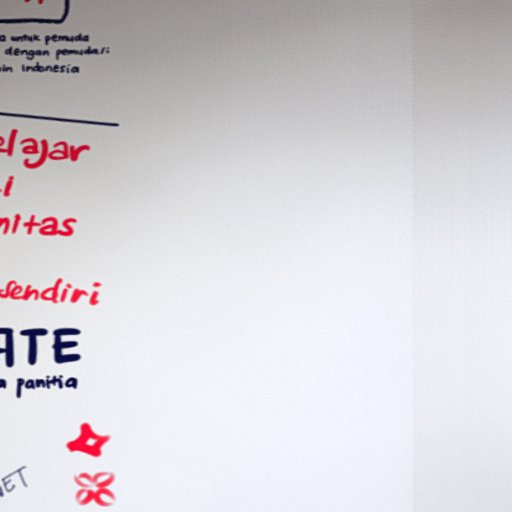 untuk pemuda
dengan pemuda/i
Indonesia
elajar
i
nitas
sendiri
ATE
a panitia
NET